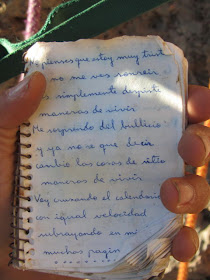 No pienses que estoy muy triste
si no me ves sonreir
es simplemente despiste
maneras de vivir
Me sorprendo del bullicio
y ya no se que decir
cambio las cosas de sitio
maneras de vivir
Voy cruzando el calendario
con igual velocidad
subrayando en mi
muchas pagin